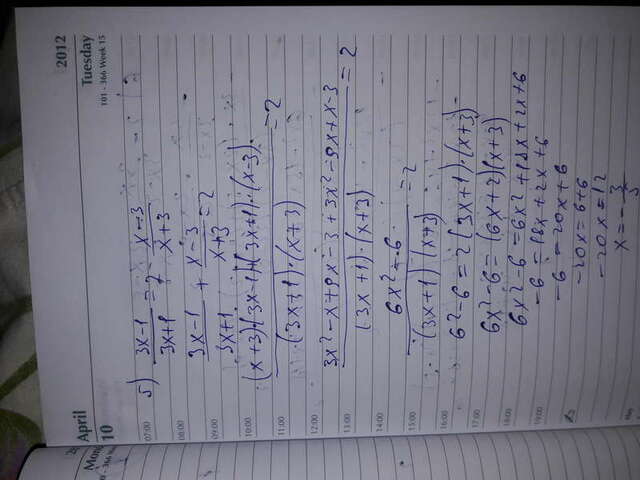 April
10
Tuesday
101 - 366 Week 15
2012
07:00
08:00
09:00
10:00
11:00
12:00
13:00
14:00
15:00
16:00
17:00
18:00
19:00
5) (3x-1)/(3x+1) = 2 - (x-3)/(x+3)
(3x-1)/(3x+1) + (x-3)/(x+3) = 2
((x+3)·(3x-1)+(3x+1)·(x-3))/((3x+1)·(x+3)) = 2
(3x²-x+9x-3+3x²-9x+x-3)/((3x+1)·(x+3)) = 2
(6x²-6)/((3x+1)(x+3)) = 2
6²-6=2(3x+1)·(x+3)
6x²-6=(6x+2)(x+3)
6x²-6=6x²+18x+2x+6
-6=18x+2x+6
-6=20x+6
-20x=6+6
-20x=12
x=-3/5